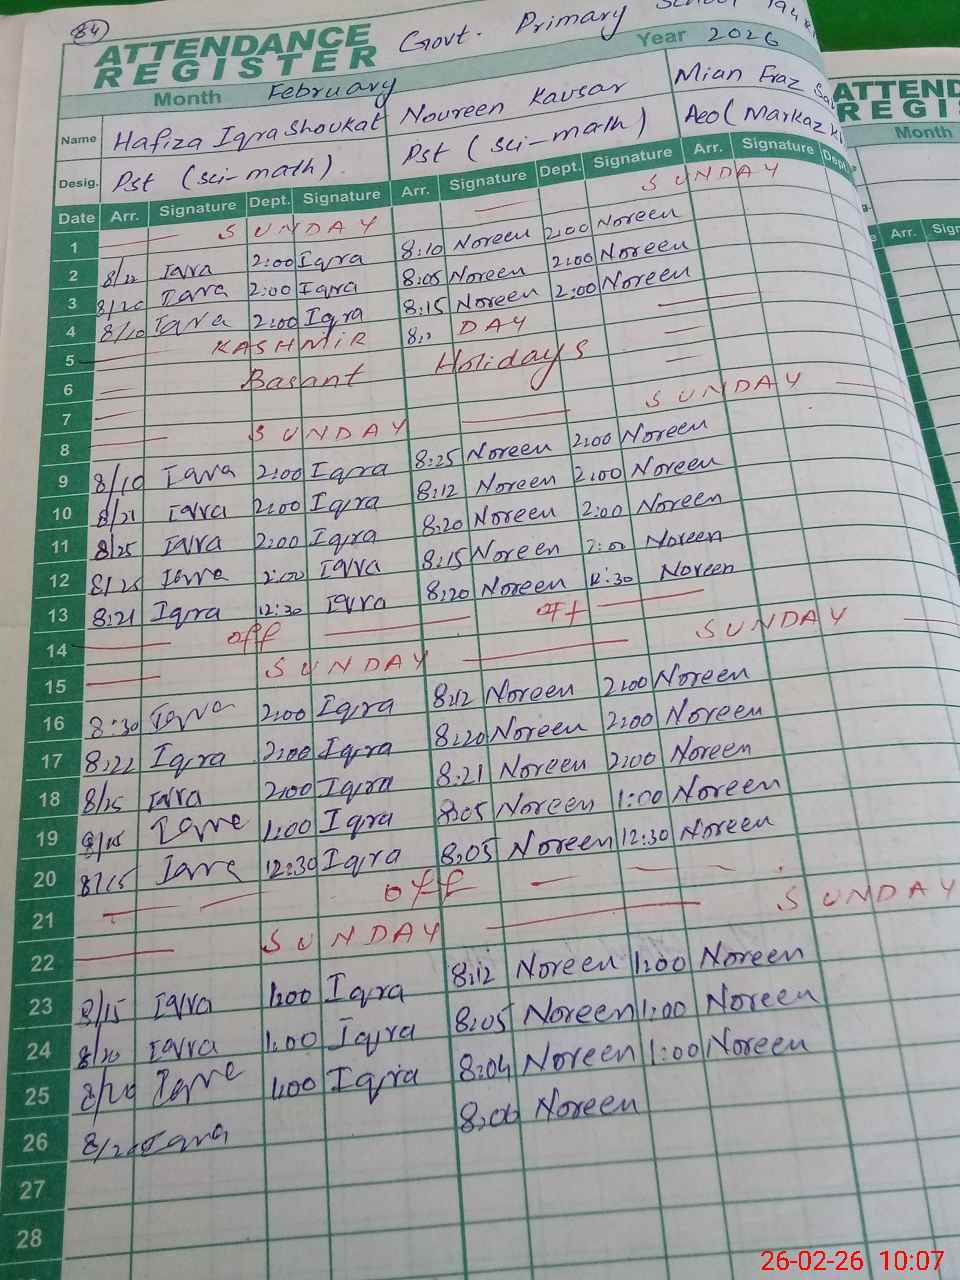 84
ATTENDANCE REGISTER Govt. Primary School 194
Month February Year 2026
Name Hafiza Iqra Shoukat Noureen Kausar Mian Fraz
Desig. Pst (sci-math). Pst (sci-math) Aeo (Markaz
Date Arr. Signature Dept. Signature Arr. Signature Dept. Signature Arr. Signature Dept.
1 SUNDAY SUNDAY
2 8/22 Iqra 2:00 Iqra 8:10 Noreen 2:00 Noreen
3 8/20 Iqra 2:00 Iqra 8:05 Noreen 2:00 Noreen
4 8/10 Iqra 2:00 Iqra 8:15 Noreen 2:00 Noreen
5 KASHMIR DAY
6 Basant Holidays
7
8 SUNDAY SUNDAY
9 8/10 Iqra 2:00 Iqra 8:25 Noreen 2:00 Noreen
10 8/21 Iqra 2:00 Iqra 8:12 Noreen 2:00 Noreen
11 8/25 Iqra 2:00 Iqra 8:20 Noreen 2:00 Noreen
12 8/25 Iqra 2:00 Iqra 8:15 Noreen 2:00 Noreen
13 8:21 Iqra 12:30 Iqra 8:20 Noreen 12:30 Noreen
14 off off
15 SUNDAY SUNDAY
16 8:30 Iqra 2:00 Iqra 8:12 Noreen 2:00 Noreen
17 8:22 Iqra 2:00 Iqra 8:20 Noreen 2:00 Noreen
18 8/25 Iqra 2:00 Iqra 8:21 Noreen 2:00 Noreen
19 8/15 Iqra 1:00 Iqra 8:05 Noreen 1:00 Noreen
20 8/15 Iqra 12:30 Iqra 8:05 Noreen 12:30 Noreen
21 off
22 SUNDAY SUNDAY
23 8/15 Iqra 1:00 Iqra 8:12 Noreen 1:00 Noreen
24 8/20 Iqra 1:00 Iqra 8:05 Noreen 1:00 Noreen
25 8/20 Iqra 1:00 Iqra 8:04 Noreen 1:00 Noreen
26 8/20 Iqra 8:06 Noreen
27
28
ATTEND
REGI
Month
Arr. Sign
26-02-26 10:07